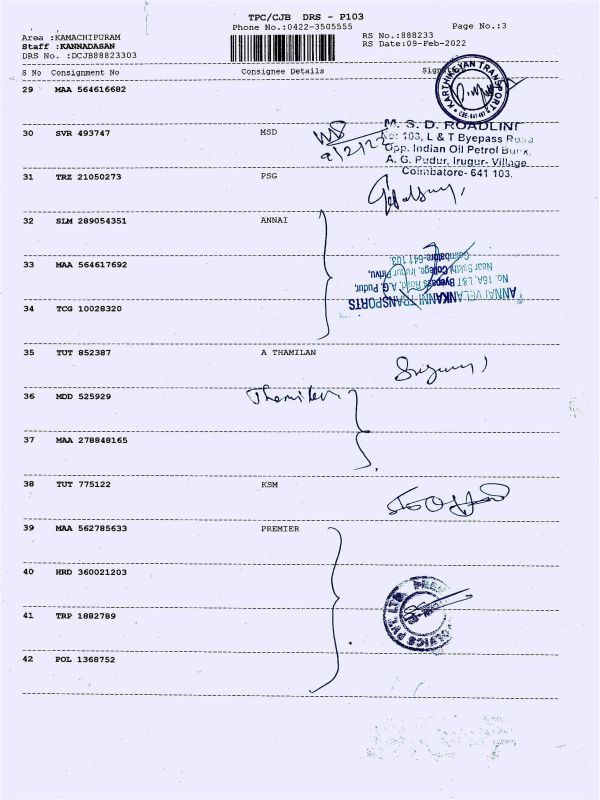 TPC/CJB DRS - P103
Phone No.:0422-3505555
Page No.:3
Area :KAMACHIPURAM
RS No.:888233
Staff :KANNADASAN
RS Date:09-Feb-2022
DRS No. :DCJB88823303
S No Consignment No Consignee Details
29 MAA 564616682
KARTHIKEYAN TRANSPORT
30 SVR 493747 MSD
9/2/22
M. S. D. ROADLINE
No: 103, L & T Byepass Road
Opp. Indian Oil Petrol Bunk,
A. G. Pudur, Irugur- Village
Coimbatore- 641 103.
31 TRZ 21050273 PSG
32 SLM 289054351 ANNAI
33 MAA 564617692
ANNAI VELANKANNI TRANSPORTS
No. 16A, L&T Byepass Road, A.G. Pudur,
Near Sakthi College, Irugur Pirivu,
Coimbatore-641 103.
34 TCG 10028320
35 TUT 852387 A THAMILAN
36 MDD 525929
37 MAA 278848165
38 TUT 775122 KSM
39 MAA 562785633 PREMIER
40 HRD 360021203
41 TRP 1882789
42 POL 1368752